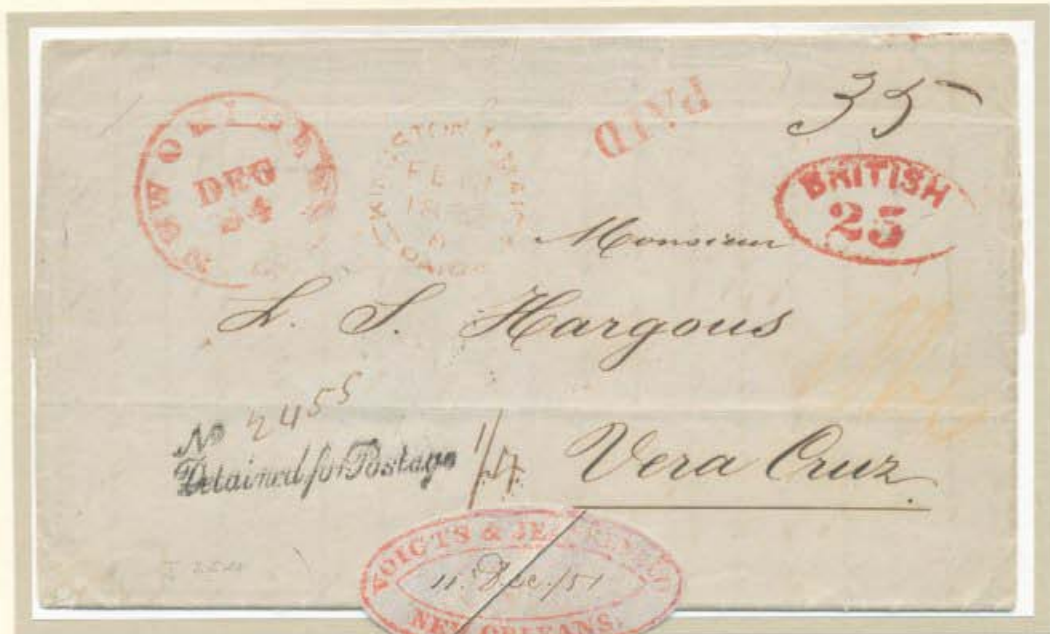 NEW ORLEANS
DEC
24
KINGSTON JAMAICA
FE
18
PAID
PAID
35
BRITISH
25
Monsieur
L. S. Hargous
No 2455
Detained for Postage
1/4
Vera Cruz.
VOIGTS &
11. Dec./51
NEW ORLEANS.